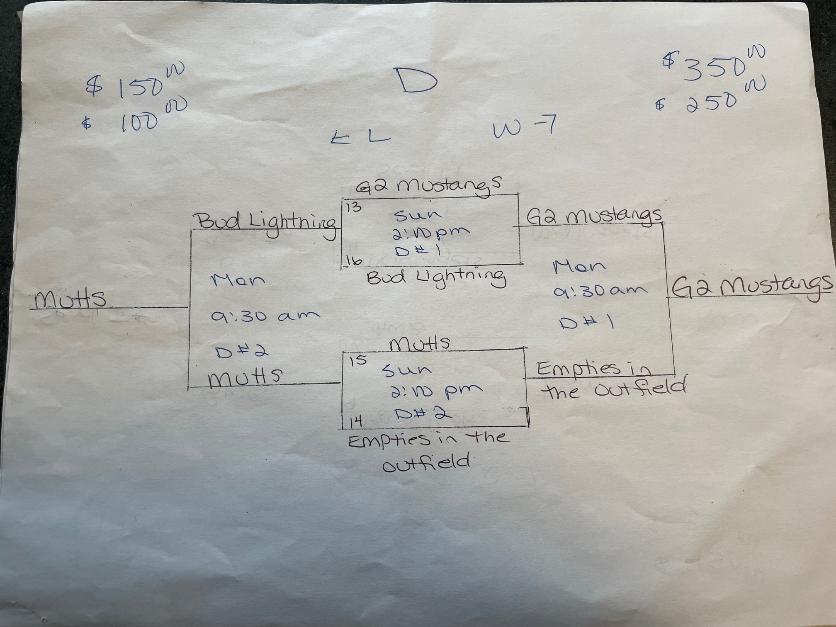 $ 150 00
$ 100 00
D
$ 350 00
$ 250 00
← L
W →
G2 Mustangs
13
Sun
2:00 pm
D#1
16
Bud Lightning
Bud Lightning
Mon
9:30 am
D#2
Mutts
Mutts
G2 Mustangs
Mon
9:30 am
D#1
Empties in
the outfield
G2 Mustangs
Mutts
15
Sun
2:00 pm
D#2
14
Empties in the
outfield